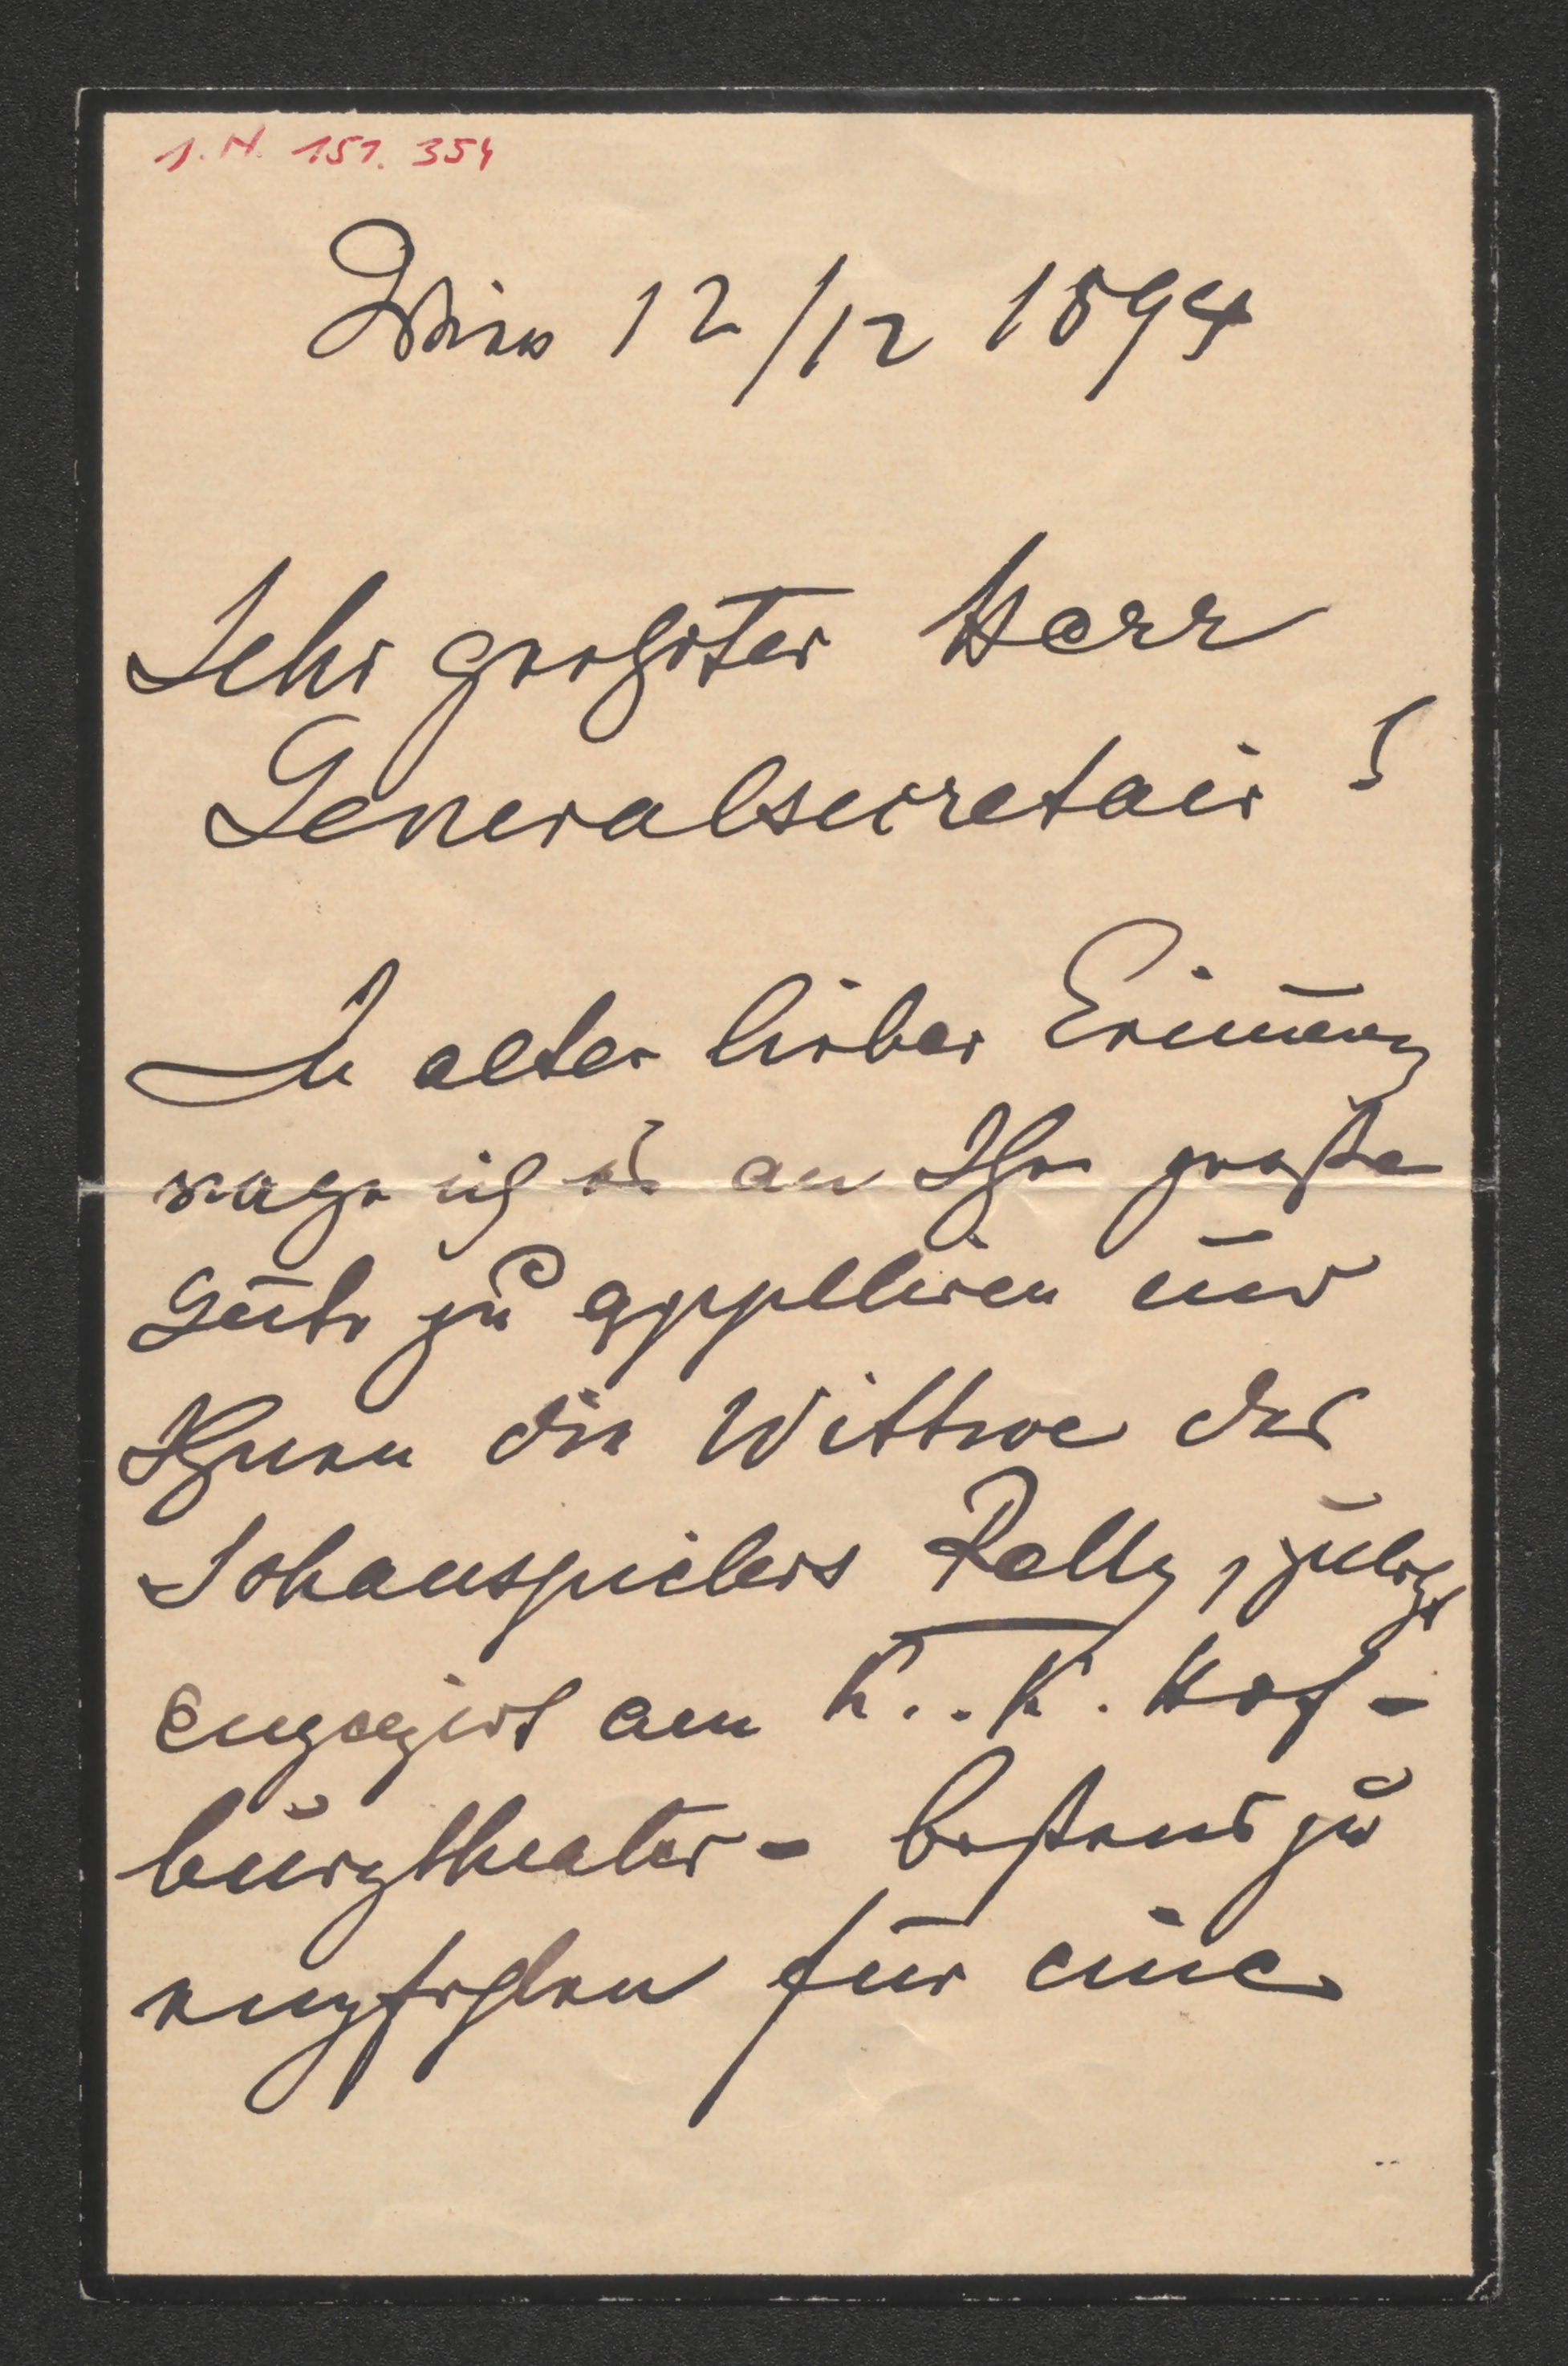 I.N. 151.354
Wien 12/12 1894
Sehr geehrter Herr
Generalsecretair!
In alter lieber Erinnerung
wage ich es an Ihre große
Güte zu appelliren und
Ihnen die Wittwe des
Schauspielers Rally, zuletzt
engagirt am K. K. Hof-
burgtheater - bestens zu
empfehlen für eine